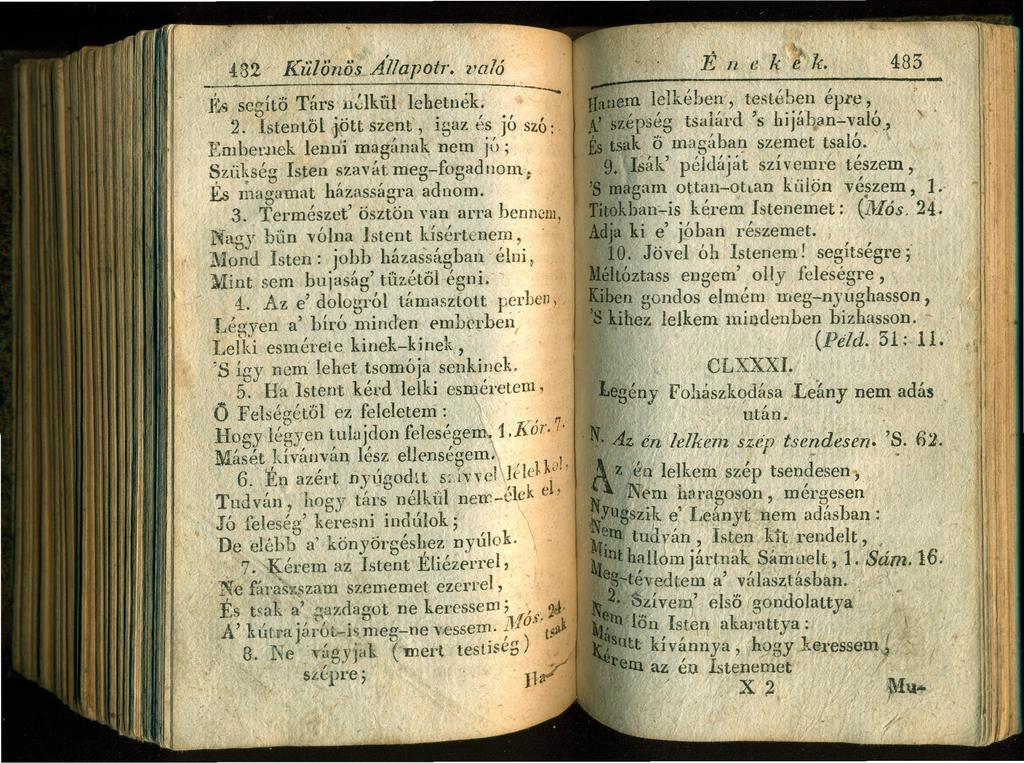 432 Különös Állapotr. való
És segitő Társ nélkül lehetnék.
2. Istentől jött szent, igaz és jó szó:
Embernek lenni magának nem jó;
Szükség Isten szavát meg-fogadnom,
És magamat házasságra adnom.
3. Természet' ösztön van arra bennem,
Nagy bűn vólna Istent kísértenem,
Mond Isten: jobb házasságban élni,
Mint sem bujaság' tüzétől égni.
4. Az e' dologról támasztott perben,
Légyen a' bíró minden emberben
Lelki esmérete kinek-kinek,
'S így nem lehet tsomója senkinek.
5. Ha Istent kérd lelki esméretem,
Ő Felségétől ez feleletem:
Hogy légyen tulajdon feleségem, 1. Kór. 7.
Másét kívánván lész ellenségem.
6. Én azért nyúgodtt szívvel lélekkel,
Tudván, hogy társ nélkül nem-élek el,
Jó feleség' keresni indúlok;
De elébb a' könyörgéshez nyúlok.
7. Kérem az Istent Éliézerrel,
Ne fáraszszam szememet ezerrel,
És tsak a' gazdagot ne keressem;
A' kútra járót-is meg-ne vessem. Mós. 24.
8. Ne vágyjak (mert testiség) tsak
szépre;
Ha-
Énekek. 483
Hanem lelkében, testében épre,
A' szépség tsalárd 's hijában-való,
És tsak ő magában szemet tsaló.
9. Isák' példáját szívemre tészem,
'S magam ottan-ottan külön vészem, 1.
Titokban-is kérem Istenemet: (Mós. 24.
Adja ki e' jóban részemet.
10. Jövel óh Istenem! segítségre;
Méltóztass engem' olly feleségre,
Kiben gondos elmém meg-nyughasson,
'S kihez lelkem mindenben bizhasson.
(Péld. 31: 11.
CLXXXI.
Legény Fohászkodása Leány nem adás
után.
N. Az én lelkem szép tsendesen. 'S. 62.
Az én lelkem szép tsendesen,
Nem haragoson, mérgesen
Nyugszik e' Leányt nem adásban:
Nem tudván, Isten kit rendelt,
Mint hallom jártnak Sámuelt, 1. Sám. 16.
Meg-tévedtem a' választásban.
2. Szívem' első gondolattya
Nem lőn Isten akarattya:
Másutt kívánnya, hogy keressem,
Kérem az én Istenemet
X 2 Mu-